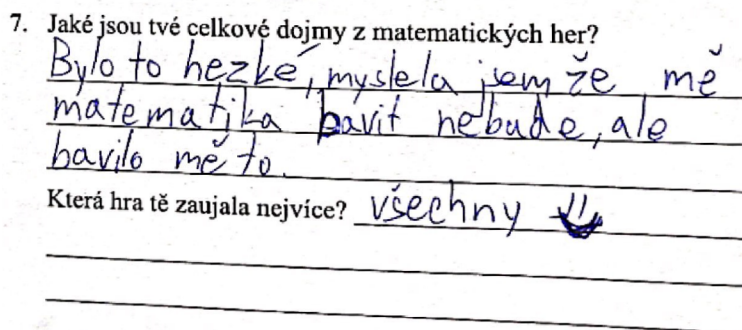 7. Jaké jsou tvé celkové dojmy z matematických her?
Bylo to hezké, myslela jsem že mě
matematika bavit nebude, ale
bavilo mě to.
Která hra tě zaujala nejvíce? všechny